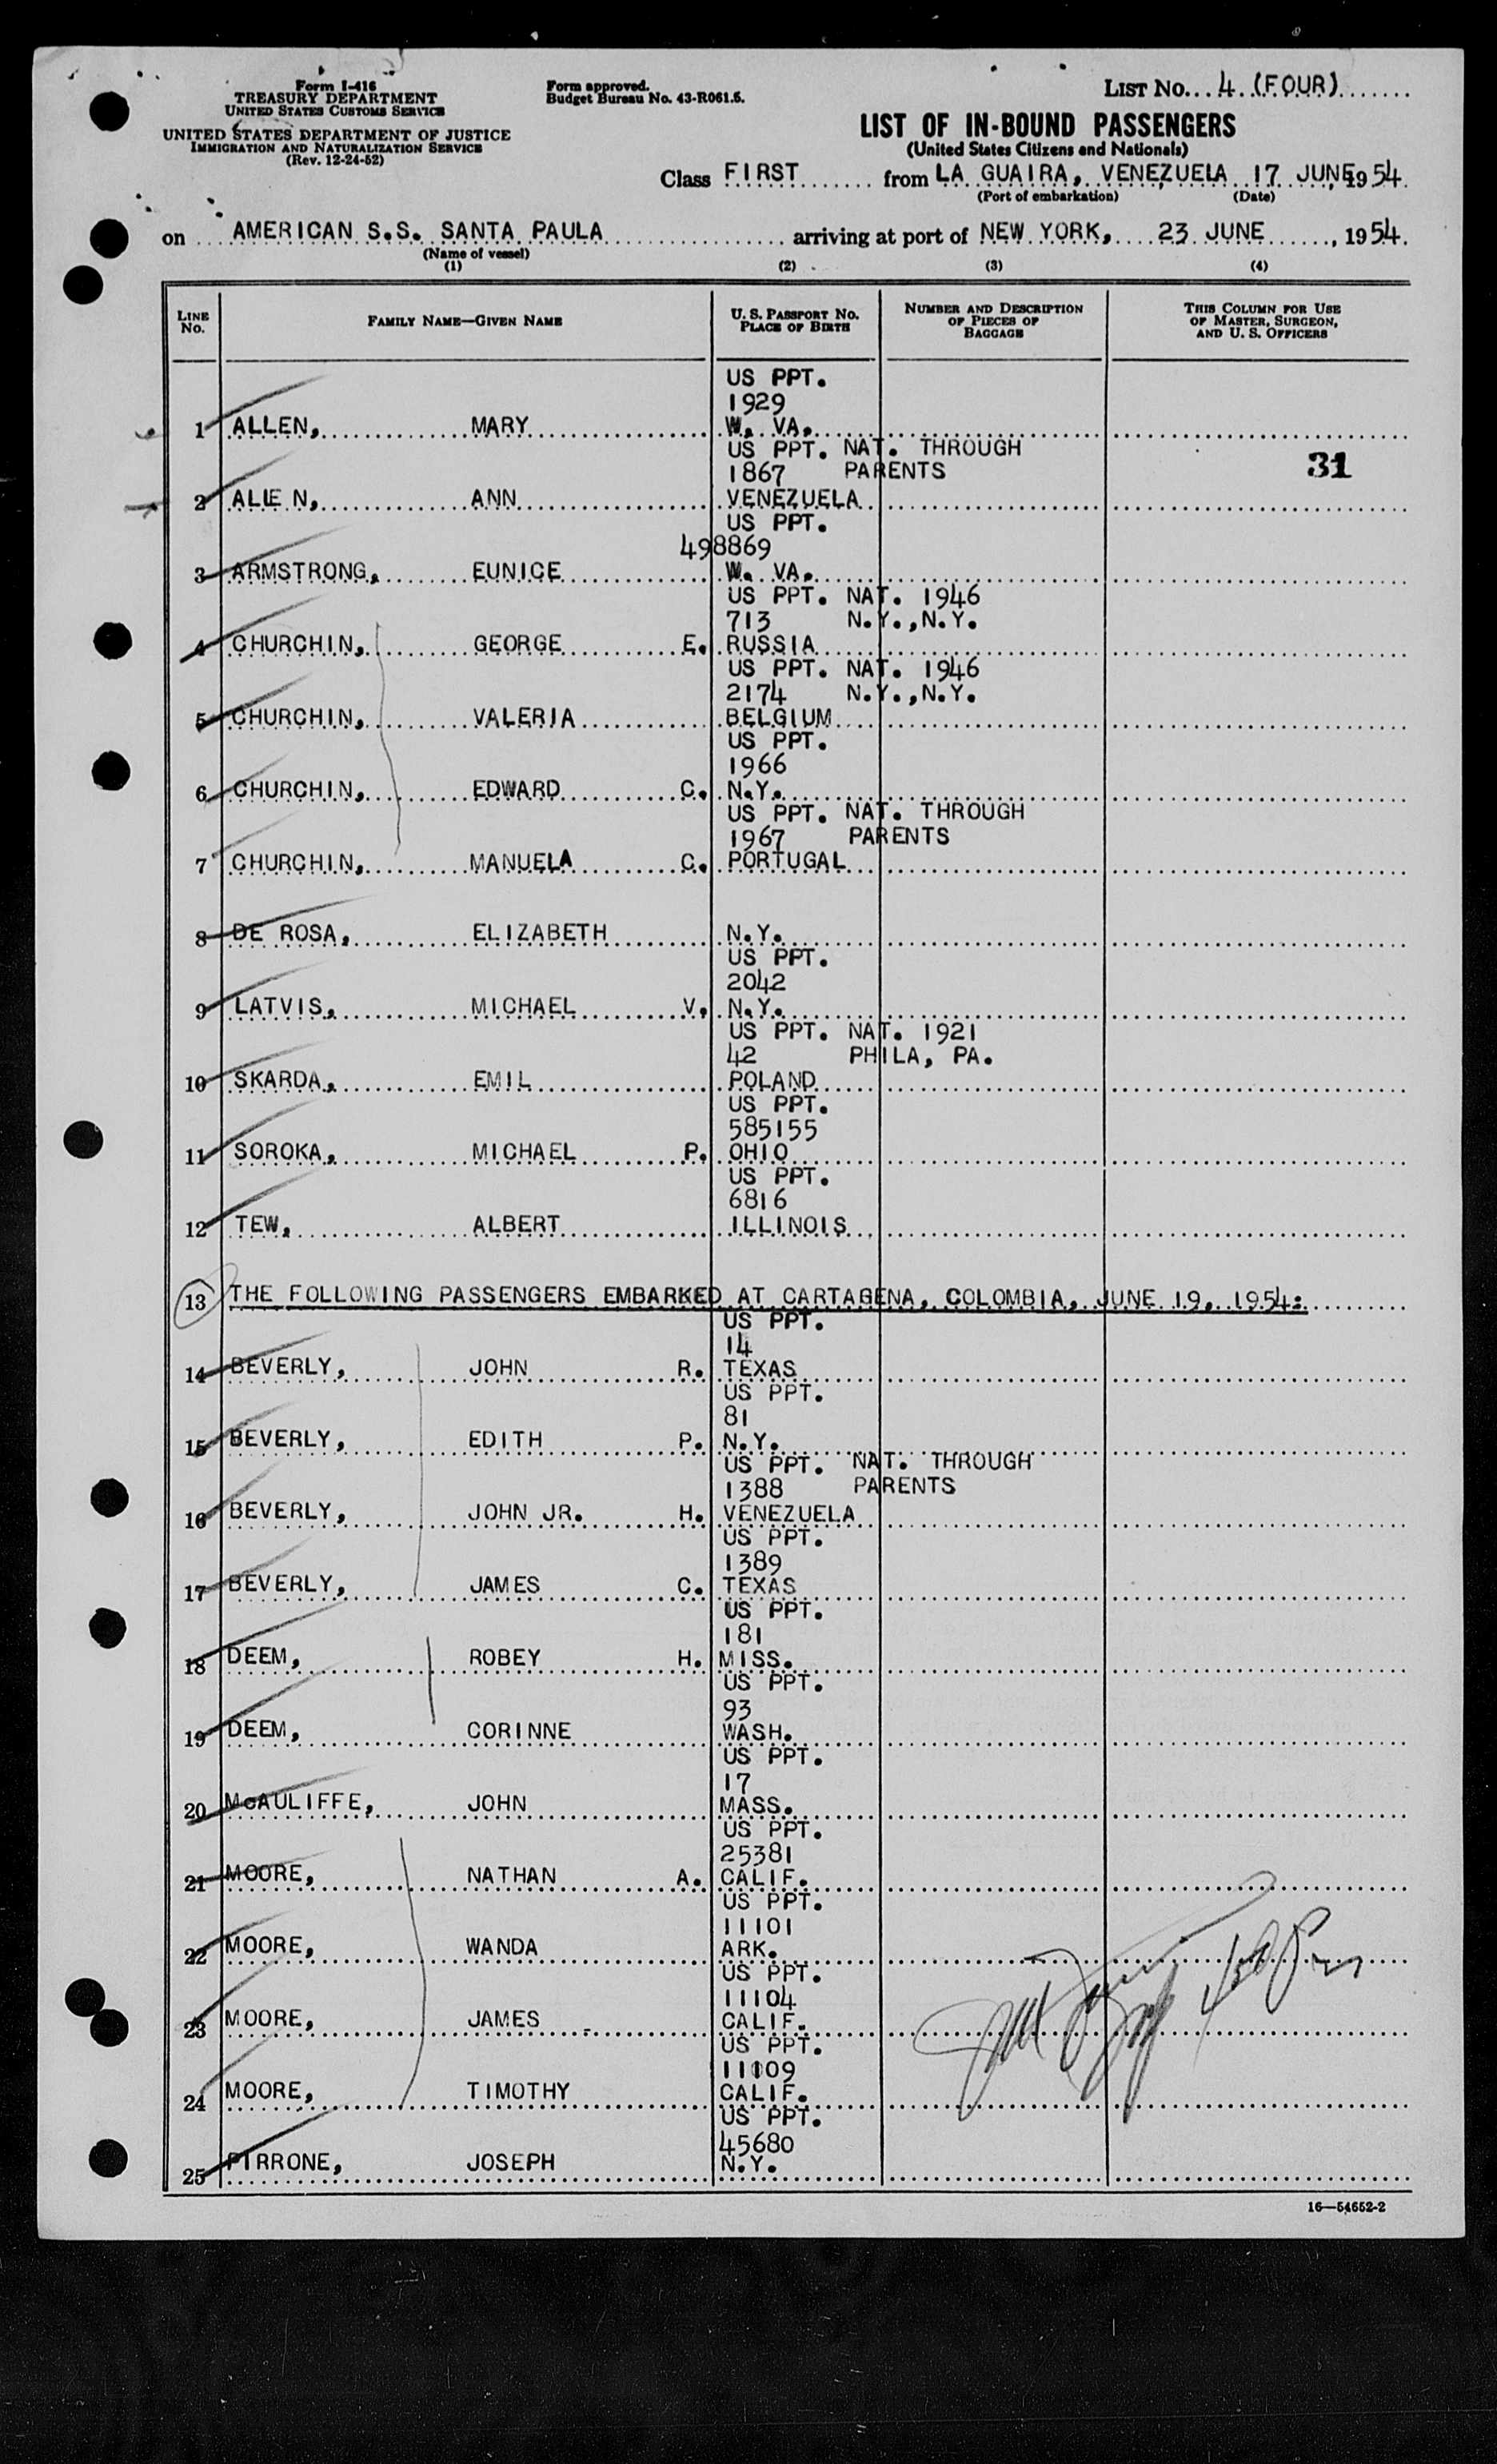 Form I-416
TREASURY DEPARTMENT
UNITED STATES CUSTOMS SERVICE
UNITED STATES DEPARTMENT OF JUSTICE
IMMIGRATION AND NATURALIZATION SERVICE
(Rev. 12-24-52)
Form approved.
Budget Bureau No. 43-R061.5.
LIST No. 4 (FOUR)
LIST OF IN-BOUND PASSENGERS
(United States Citizens and Nationals)
Class FIRST from LA GUAIRA, VENEZUELA 17 JUNE, 1954.
(Port of embarkation) (Date)
on AMERICAN S.S. SANTA PAULA arriving at port of NEW YORK, 23 JUNE, 1954.
(Name of vessel)
(1) (2) (3) (4)
LINE No. FAMILY NAME—GIVEN NAME U. S. PASSPORT No. PLACE OF BIRTH NUMBER AND DESCRIPTION OF PIECES OF BAGGAGE THIS COLUMN FOR USE OF MASTER, SURGEON, AND U. S. OFFICERS
US PPT.
1929
1 ALLEN, MARY W. VA.
US PPT. NAT. THROUGH
1867 PARENTS 31
2 ALLEN, ANN VENEZUELA
US PPT.
498869
3 ARMSTRONG, EUNICE W. VA.
US PPT. NAT. 1946
713 N.Y.,N.Y.
4 CHURCHIN, GEORGE E. RUSSIA
US PPT. NAT. 1946
2174 N.Y.,N.Y.
5 CHURCHIN, VALERIA BELGIUM
US PPT.
1966
6 CHURCHIN, EDWARD C. N.Y.
US PPT. NAT. THROUGH
1967 PARENTS
7 CHURCHIN, MANUELA C. PORTUGAL
8 DE ROSA, ELIZABETH N.Y.
US PPT.
2042
9 LATVIS, MICHAEL V. N.Y.
US PPT. NAT. 1921
42 PHILA, PA.
10 SKARDA, EMIL POLAND
US PPT.
585155
11 SOROKA, MICHAEL P. OHIO
US PPT.
6816
12 TEW, ALBERT ILLINOIS
13 THE FOLLOWING PASSENGERS EMBARKED AT CARTAGENA, COLOMBIA, JUNE 19, 1954:
US PPT.
14
14 BEVERLY, JOHN R. TEXAS
US PPT.
81
15 BEVERLY, EDITH P. N.Y.
US PPT. NAT. THROUGH
1388 PARENTS
16 BEVERLY, JOHN JR. H. VENEZUELA
US PPT.
1389
17 BEVERLY, JAMES C. TEXAS
US PPT.
181
18 DEEM, ROBEY H. MISS.
US PPT.
93
19 DEEM, CORINNE WASH.
US PPT.
17
20 McAULIFFE, JOHN MASS.
US PPT.
25381
21 MOORE, NATHAN A. CALIF.
US PPT.
11101
22 MOORE, WANDA ARK.
US PPT.
11104
23 MOORE, JAMES CALIF.
US PPT.
11109
24 MOORE, TIMOTHY CALIF.
US PPT.
45680
25 PIRRONE, JOSEPH N.Y.
16—54652-2